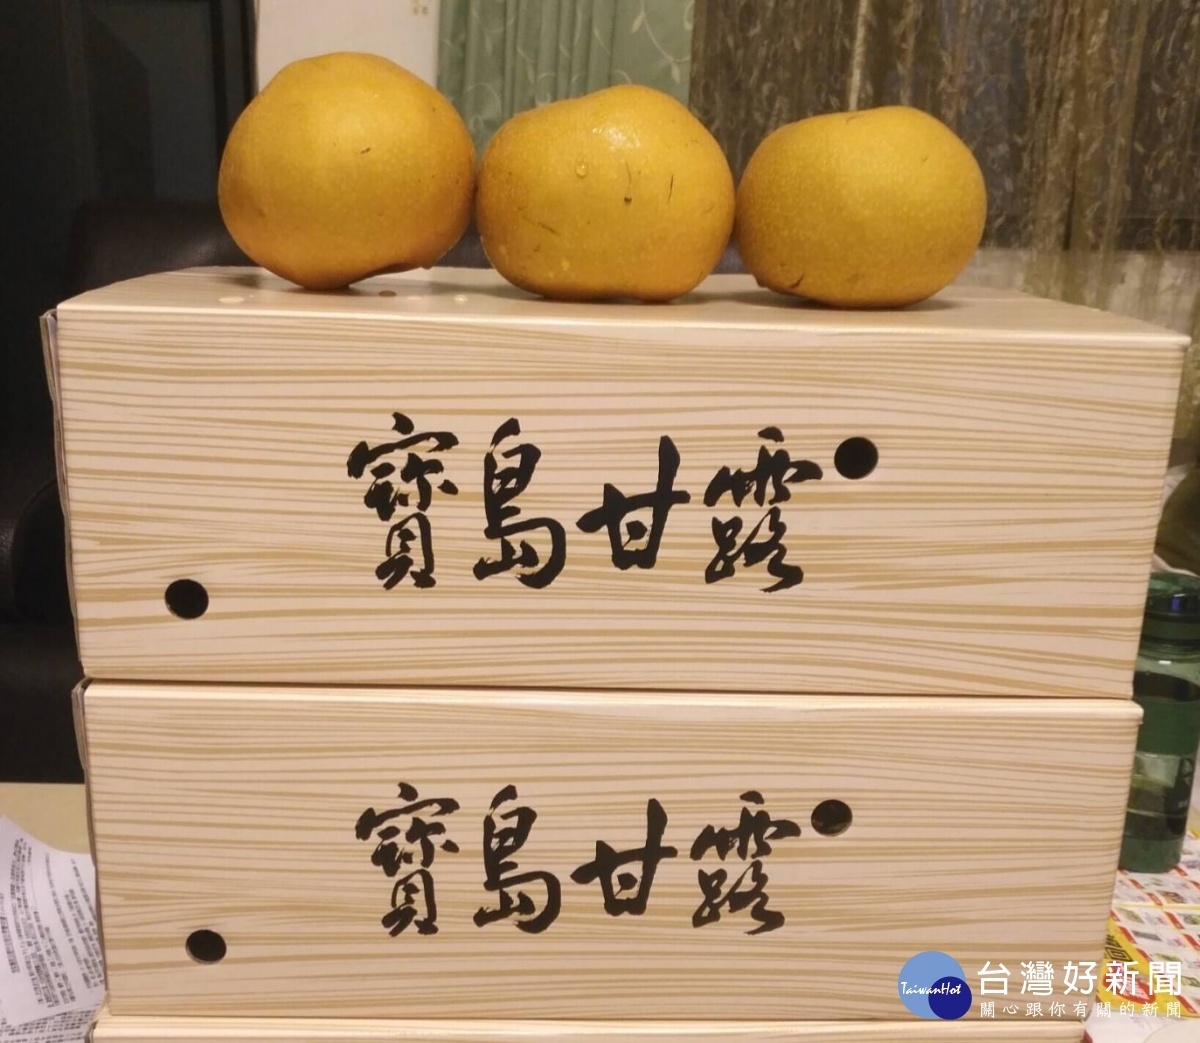 寶島甘露
寶島甘露
TaiwanHot
台灣好新聞
關心跟你有關的新聞